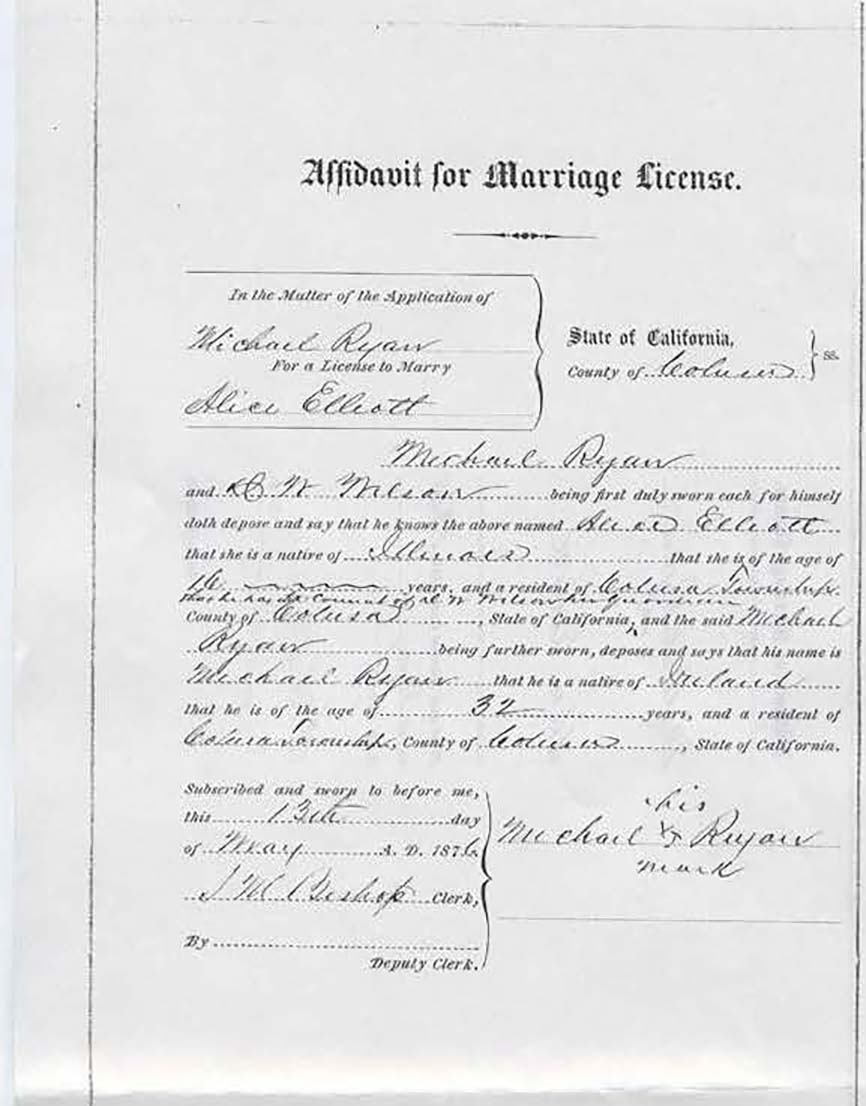 Affidavit for Marriage License.
In the Matter of the Application of
Michael Ryan
For a License to Marry
Alice Elliott
State of California,
County of Colusa ss.
Michael Ryan
and W Wilson being first duly sworn each for himself
doth depose and say that he knows the above named Alice Elliott
that she is a native of Illinois that she is of the age of
16 years, and a resident of Colusa Township
that he has the consent of W Wilson her Guardian
County of Colusa, State of California, and the said Michael
Ryan being further sworn, deposes and says that his name is
Michael Ryan that he is a native of Ireland
that he is of the age of 32 years, and a resident of
Colusa Township, County of Colusa, State of California.
Subscribed and sworn to before me,
this 13th day
of May A. D. 1876
Bishop Clerk,
By
Deputy Clerk.
his
Michael X Ryan
mark